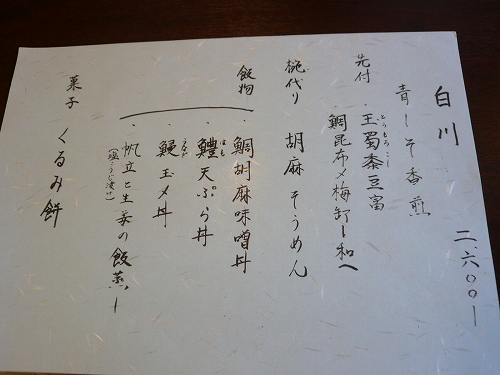 白川 二、六〇〇ー
青しそ香煎
先付 ・玉蜀黍豆富
とうもろこし
・鯛昆布〆梅卸し和へ
椀代り 胡麻そうめん
飯物 ・鯛胡麻味噌丼
・鱧天ぷら丼
はも
・鰻玉〆丼
うなぎ
・帆立と生姜の飯蒸し
(塩こうじ漬け)
菓子 くるみ餅